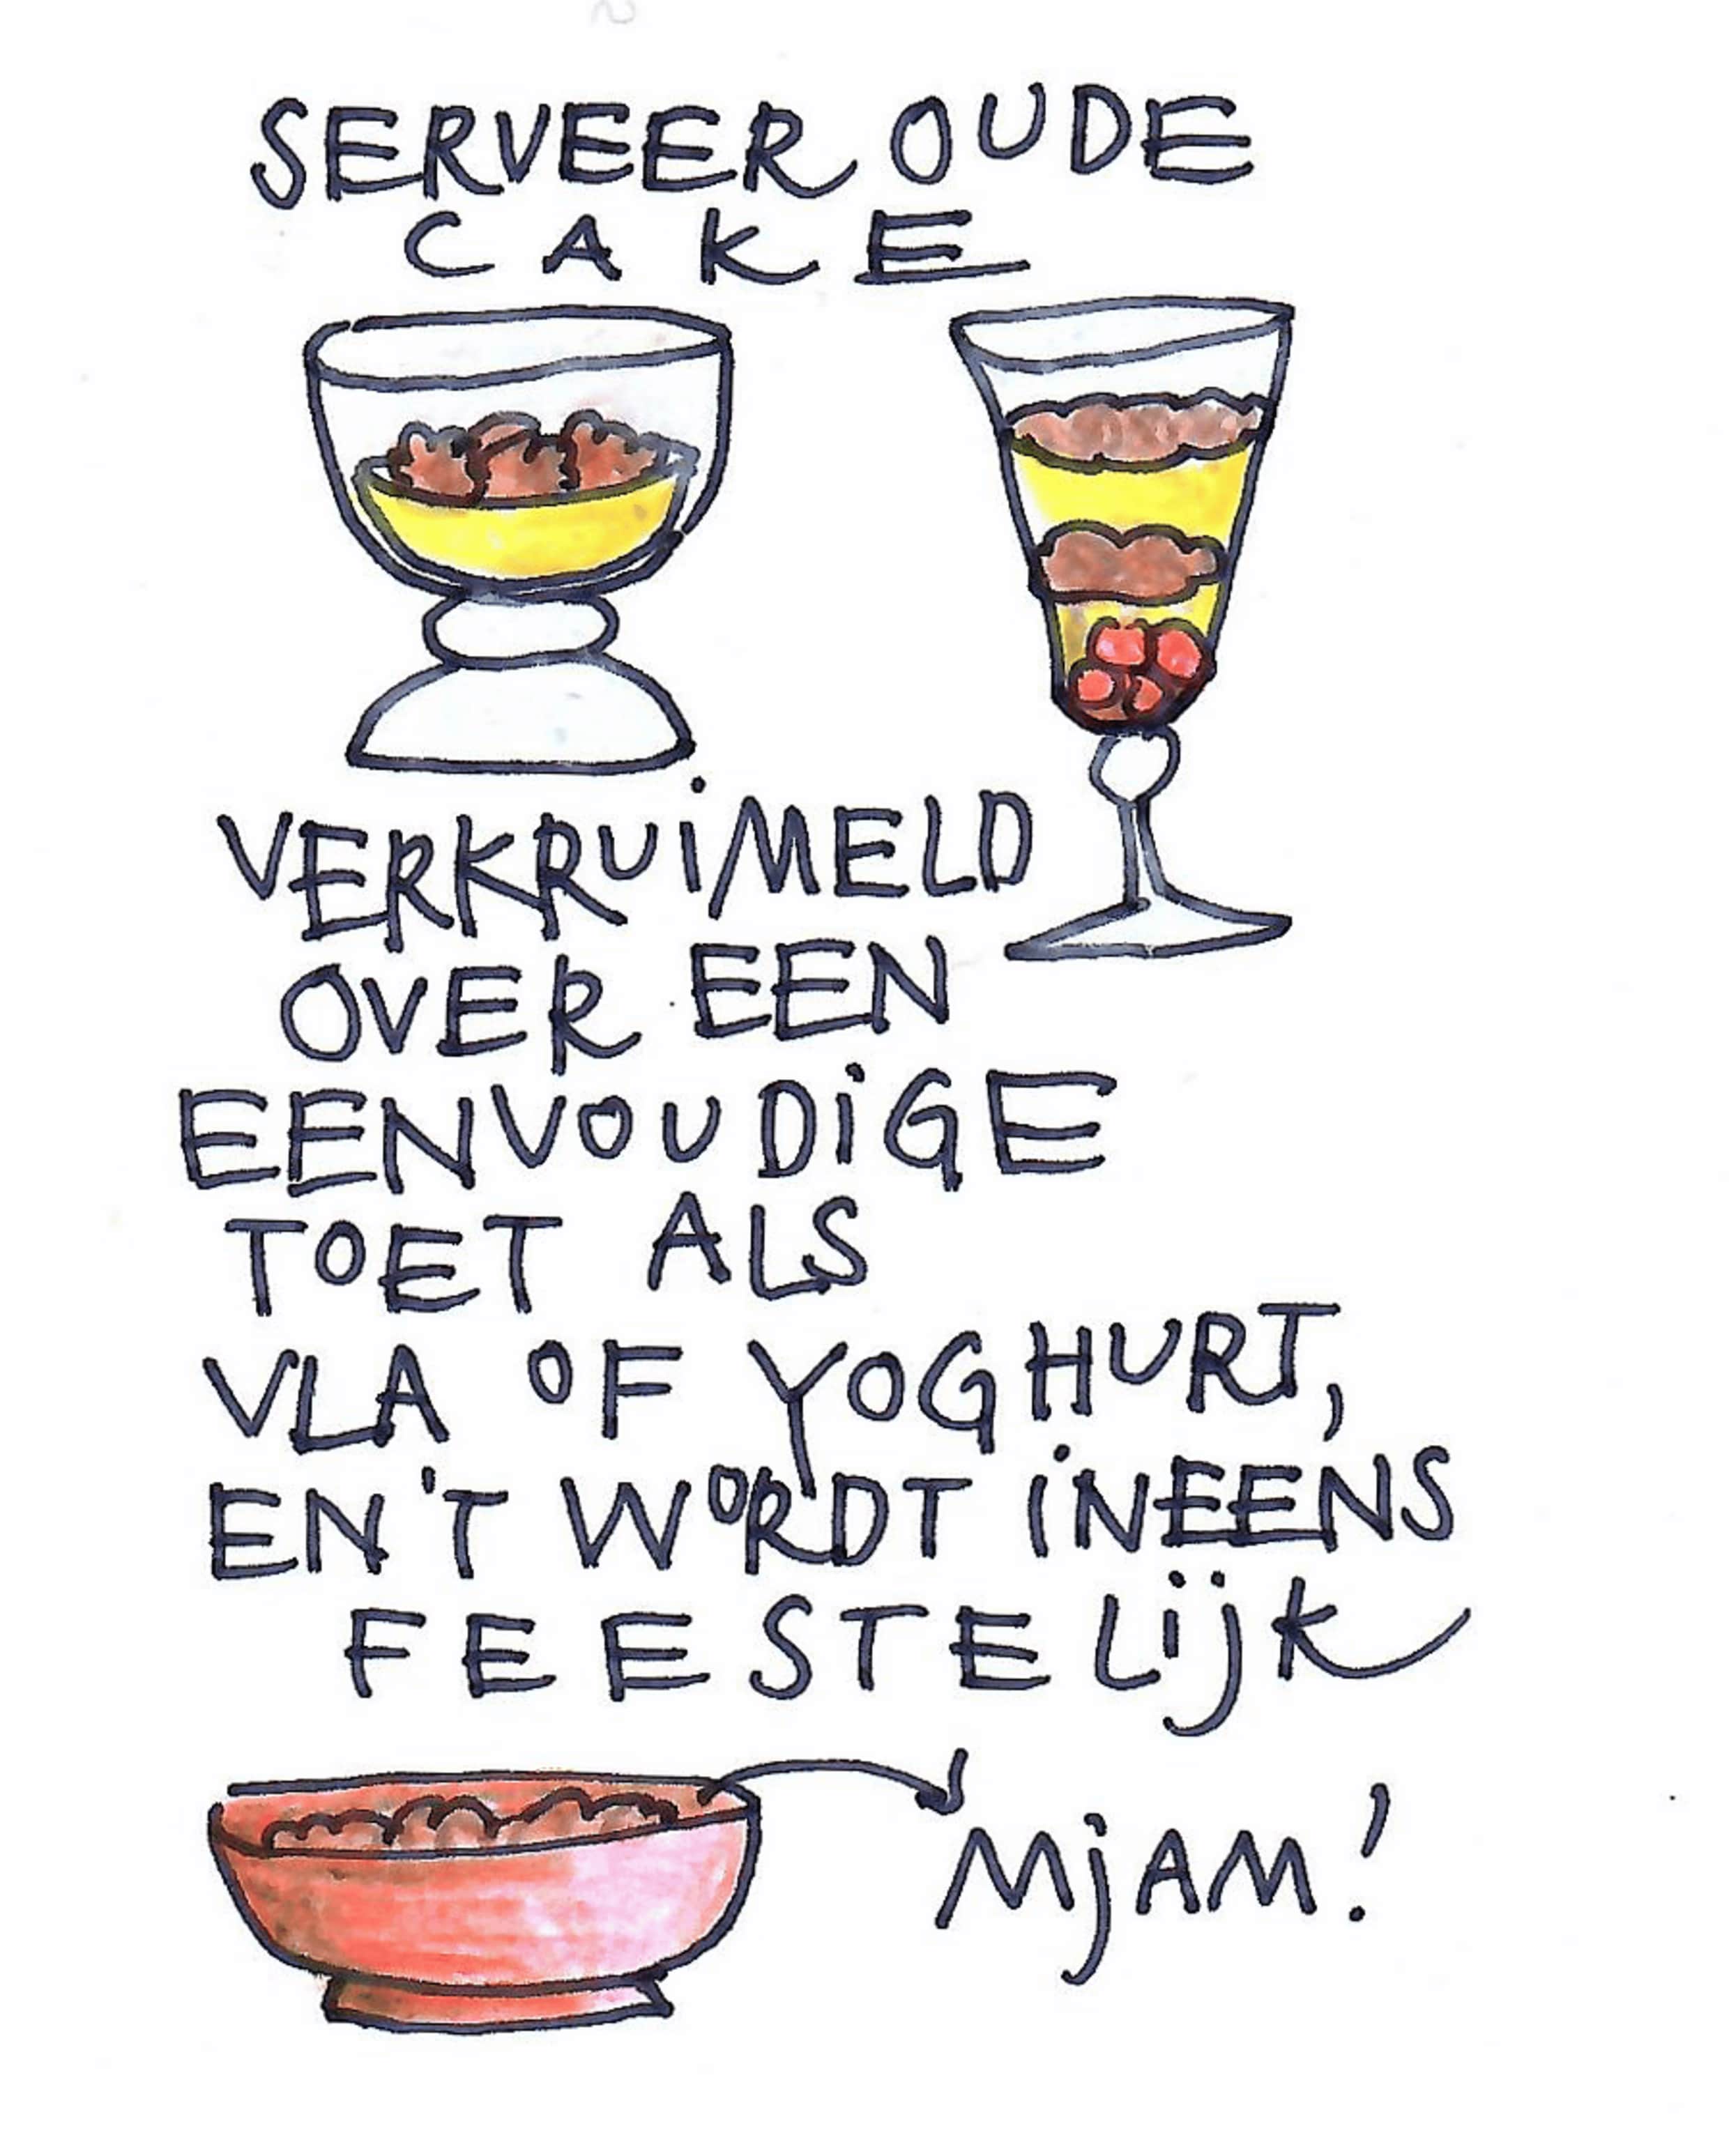 SERVEER OUDE
CAKE
VERKRUiMELD
OVER EEN
EENVOUDiGE
TOET ALS
VLA OF YOGHURT,
EN 'T WORDT iNEENS
FEESTELijK
MjAM!